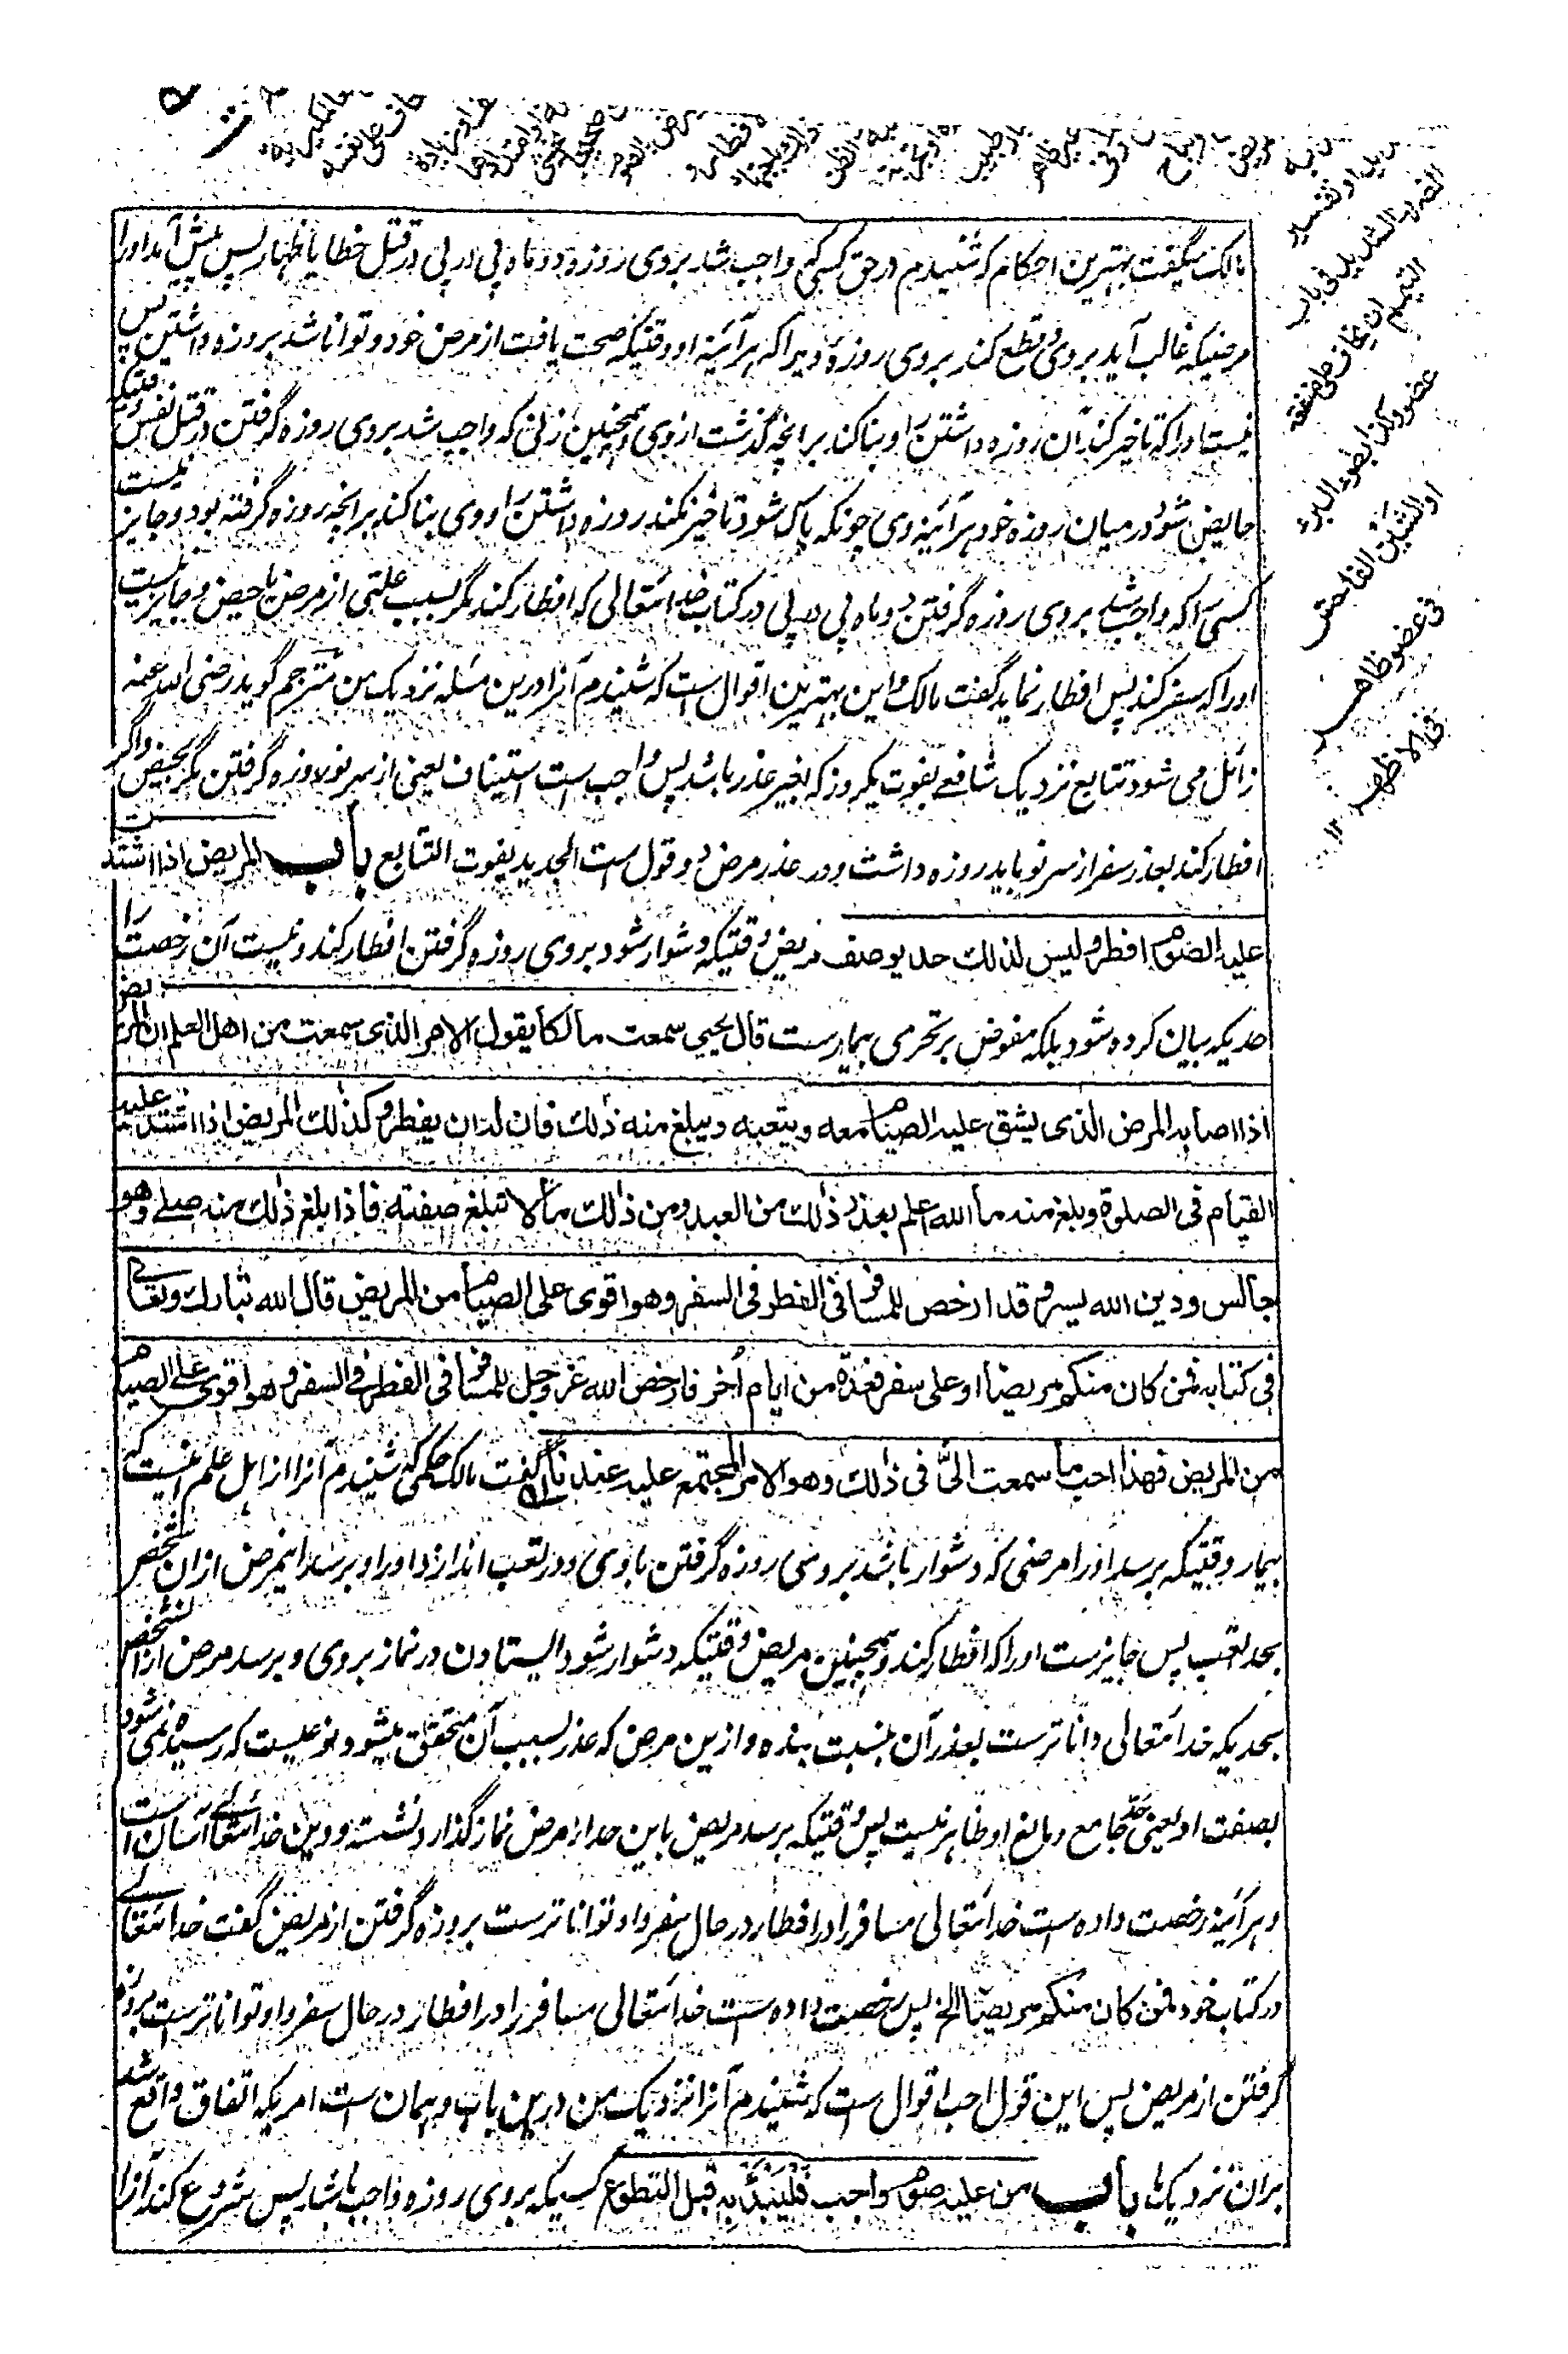 مالک میگفت بهترین احکام که شنیدم در حق کسی که واجب شد بروی روزه دو ماه پی در پی در قتل خطا یا ظهار پس پیش آمد او را
مرضیکه غالب آید بروی و قطع کند بروی روزهٔ ویرا که هر آئینه او وقتیکه صحت یافت از مرض خود و توانا شد بروزه داشتن پس
نیست او را که تاخیر کند آن روزه داشتن را و بنا کند بر آنچه گذشت از وی و همچنین زنی که واجب شد بروی روزه گرفتن در قتل نفس وقتیکه
حایض شود در میان روزه خود هر آئینه وی چونکه پاک شود تاخیر نکند روزه داشتن را و وی بنا کند بر آنچه روزه گرفته بود و جایز نیست
کسی را که واجب شد بروی روزه گرفتن دو ماه پی در پی در کتاب خدا تعالی که افطار کند مگر بسبب علتی از مرض یا حیض و جایز نیست
او را که سفر کند پس افطار نماید گفت مالک و این بهترین اقوال است که شنیدم آنرا درین مسئله نزدیک من مترجم گوید رضی الله عنه
زائل می شود تتابع نزدیک شافعی بفوت یکروز که بغیر عذر باشد پس واجب است استیناف یعنی از سر نو روزه گرفتن مگر بحیض و اگر
افطار کند بعذر سفر از سر نو باید روزه داشت و در عذر مرض دو قول است الجدید یفوت التتابع باب المریض اذا اشتد
علیه الصوم افطر ولیس لذلک حد یوصف مریض وقتیکه دشوار شود بروی روزه گرفتن افطار کند و نیست آن رخصت را
حدیکه بیان کرده شود بلکه مفوض بر تحری بیمارست قال یحیی سمعت مالکا یقول الامر الذی سمعت من اهل العلم ان المریض
اذا اصابه المرض الذی یشق علیه الصیام معه ویتعبه ویبلغ منه ذلک فان له ان یفطر وکذلک المریض اذا اشتد علیه
القیام فی الصلوة وبلغ منه ما الله اعلم بعذر ذلک من العبد ومن ذلک ما لا تبلغ صفته فاذا بلغ ذلک منه صلی وهو
جالس ودین الله یسر وقد ارخص للمسافر فی الفطر فی السفر وهو اقوی علی الصیام من المریض قال الله تبارک وتعالی
فی کتابه فمن کان منکم مریضا او علی سفر فعدة من ایام اُخر فارخص الله عز وجل للمسافر فی الفطر فی السفر وهو اقوی علی الصیام
من المریض فهذا احب ما سمعت الیّ فی ذلک وهو الامر المجتمع علیه عندنا گفت مالک حکمی که شنیدم آنرا از اهل علم اینست که
بیمار وقتیکه برسد او را مرضی که دشوار باشد بروی روزه گرفتن با وی و در تعب اندازد او را و برسد اینمرض از ان شخص
بحد تعب پس جایزست او را که افطار کند و همچنین مریض وقتیکه دشوار شود ایستادن در نماز بروی و برسد مرض از آن شخص
بحدیکه خدا تعالی داناترست بعذر آن بنسبت بنده و ازین مرض که عذر بسبب آن متحقق میشود نوعیست که رسیده نمی شود
بصفت او یعنی حد جامع و مانع او ظاهر نیست پس وقتیکه برسد مریض باین حد از مرض نماز گذارد نشسته و دین خدا تعالی آسان است
و هر آئینه رخصت داده است خدا تعالی مسافر را در افطار در حال سفر و او تواناترست بروزه گرفتن از مریض گفت خدا تعالی
در کتاب خود فمن کان منکم مریضا الخ پس رخصت داده است خدا تعالی مسافر را در افطار در حال سفر و او تواناترست بروزه
گرفتن از مریض پس این قول احب اقوال است که شنیدم آنرا نزدیک من درین باب و همان است امریکه اتفاق واقع شد
بران نزدیک ما باب من علیه صوم واجب فلیبدأ به قبل التطوع کسیکه بروی روزه واجب باشد پس شروع کند آنرا
التیمم
ان یخاف علی منفعة
عضو وکذا بطوء البرء
او الشین الفاحش
فی عضو ظاهر
فی الاظهر ۱۲